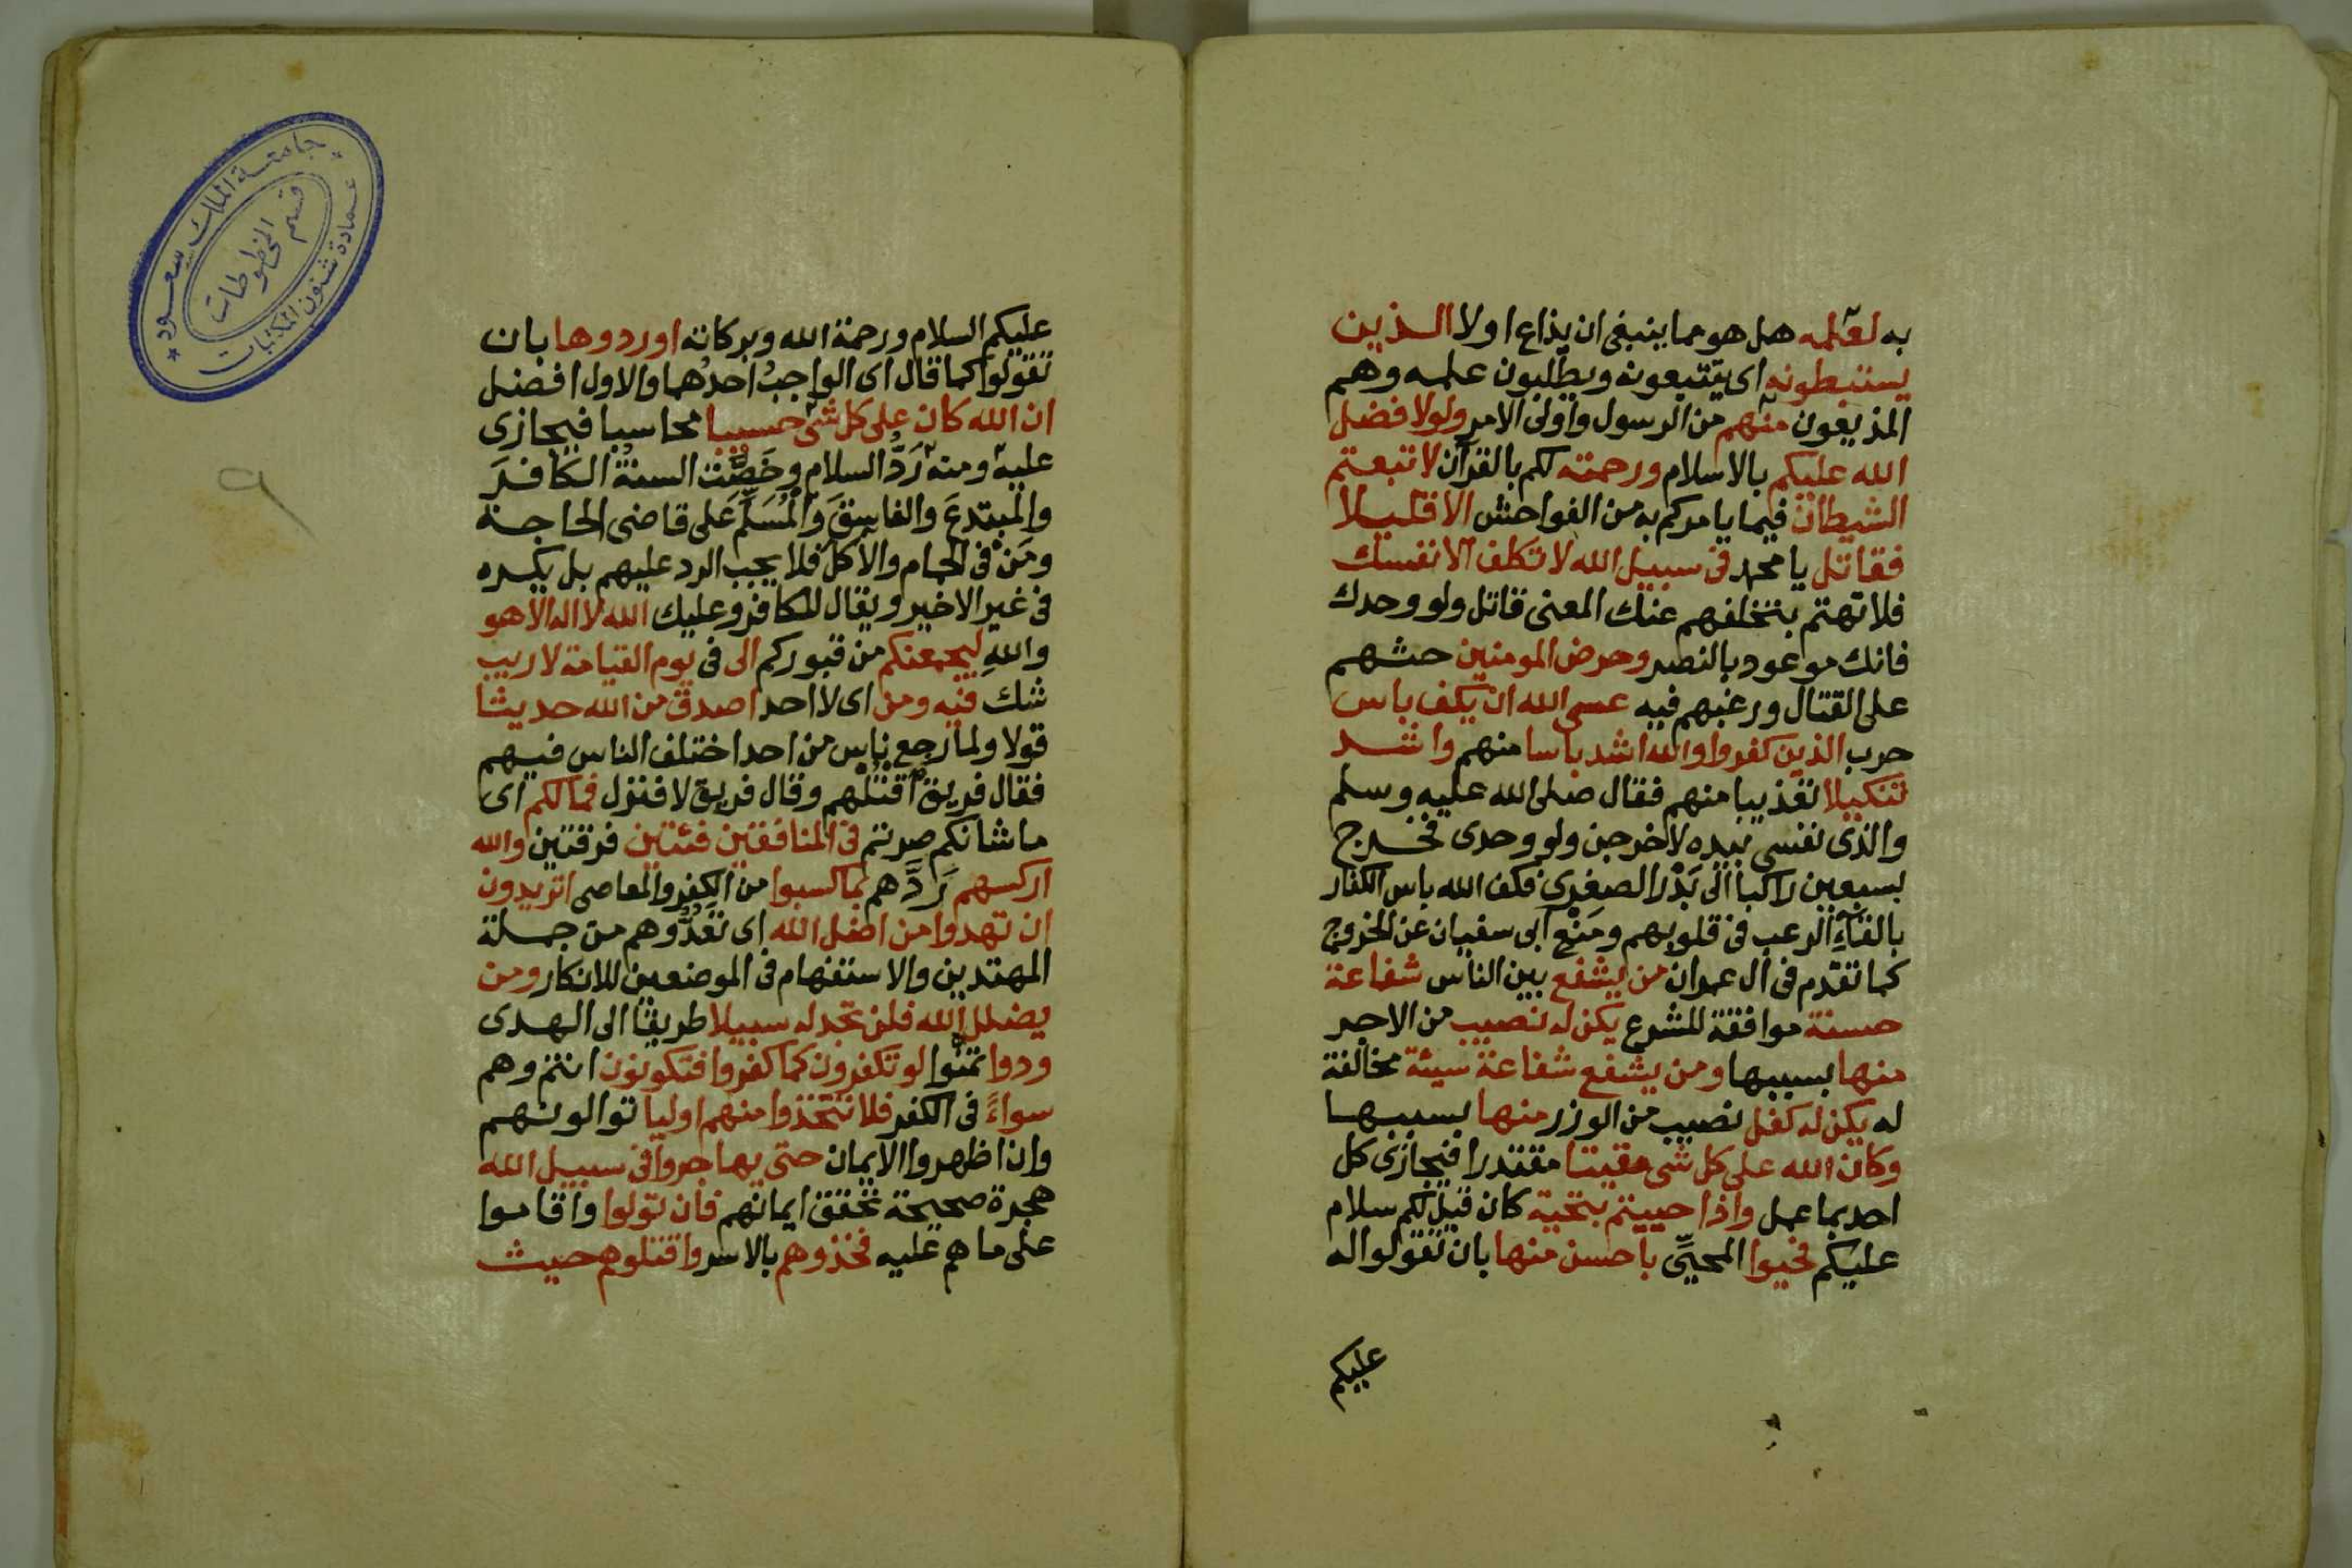 به لعلمه هل هو مما ينبغى ان يذاع اولا الذين
يستنبطونه اى يتتبعونه ويطلبون علمه وهم
المذيعون منهم من الرسول واولى الامر ولولا فضل
الله عليكم بالاسلام ورحمته لكم بالقرآن لاتبعتم
الشيطان فيما يامركم به من الفواحش الا قليلا
فقاتل يا محمد فى سبيل الله لا تكلف الا نفسك
فلا تهتم بتخلفهم عنك المعنى قاتل ولو وحدك
فانك موعود بالنصر وحرض المومنين حثهم
على القتال ورغبهم فيه عسى الله ان يكف باس
حرب الذين كفروا والله اشد باسا منهم واشد
تنكيلا تعذيبا منهم فقال صلى الله عليه وسلم
والذى نفسى بيده لاخرجن ولو وحدى فخرج
بسبعين راكبا الى بَدْر الصغرى فكف الله باس الكفار
بالقاءِ الرعب فى قلوبهم ومَنْع ابى سفيان عن الخروج
كما تقدم فى ال عمران من يشفع بين الناس شفاعة
حسنة موافقة للشرع يكن له نصيب من الاجر
منها بسببها ومن يشفع شفاعة سيئة مخالفة
له يكن له كفل نصيب من الوزر منها بسببها
وكان الله على كل شى مقيتا مقتدرا فيجازى كل
احد بما عمل واذا حييتم بتحية كان قيل لكم سلام
عليكم فحيوا المحيِّى باحسن منها بان تقولوا له
عليكم
عليكم السلام ورحمة الله وبركاته او ردوها بان
تقولوا كما قال اى الواجبُ احدُهما والاول افضل
ان الله كان على كل شئ حسيبا محاسبا فيجازى
عليه ومنه رَدُّ السلام وخَصَّت السنةُ الكافرَ
والمبتدعَ والفاسِقَ وَالمُسَلِّمَ على قاضى الحاجة
ومَنْ فى الحمام والآكل فلا يجب الرد عليهم بل يكره
فى غير الاخير ويقال للكافر وعليك الله لا اله الا هو
واللهِ ليجمعنكم من قبوركم الى فى يوم القيامة لا ريب
شك فيه ومن اى لا احد اصدق من الله حديثا
قولا ولما رجع ناس من احد اختلف الناس فيهم
فقال فريق اقتُلْهم وقال فريق لا فنزل فمالكم اى
ما شانكم صرتم فى المنافقين فئتين فرقتين والله
اركسهم رَدَّهم بما كسبوا من الكفر والمعاصى اتريدون
ان تهدوا من اضل الله اى تَعُدُّوهم من جملة
المهتدين والاستفهام فى الموضعين للانكار ومن
يضلل الله فلن تجد له سبيلا طريقا الى الهدى
ودوا تمنوا لو تكفرون كما كفروا فتكونون انتم وهم
سواءً فى الكفر فلا تتخذوا منهم اوليا توالونهم
وان اظهروا الايمان حتى يهاجروا فى سبيل الله
هجرة صحيحة تحقق ايمانهم فان تولوا واقاموا
على ما هم عليه فخذوهم بالاسر واقتلوهم حيث
٩
جامعة الملك سعود
قسم المخطوطات
عمادة شئون المكتبات